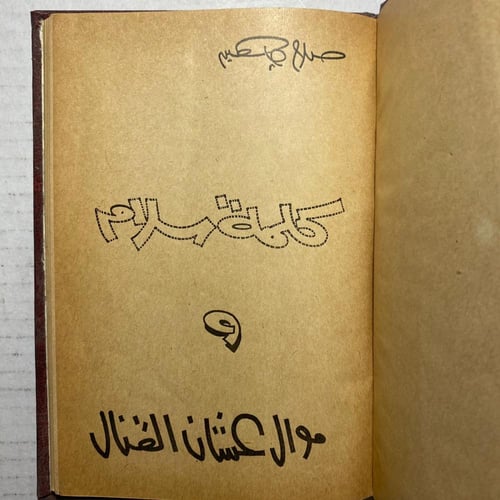 صلاح جاهين
كلمة سلام
و
موال عشان القنال